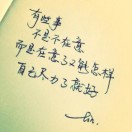 有些事
不是不在意
而是在意了又能怎样
自己尽力了就好